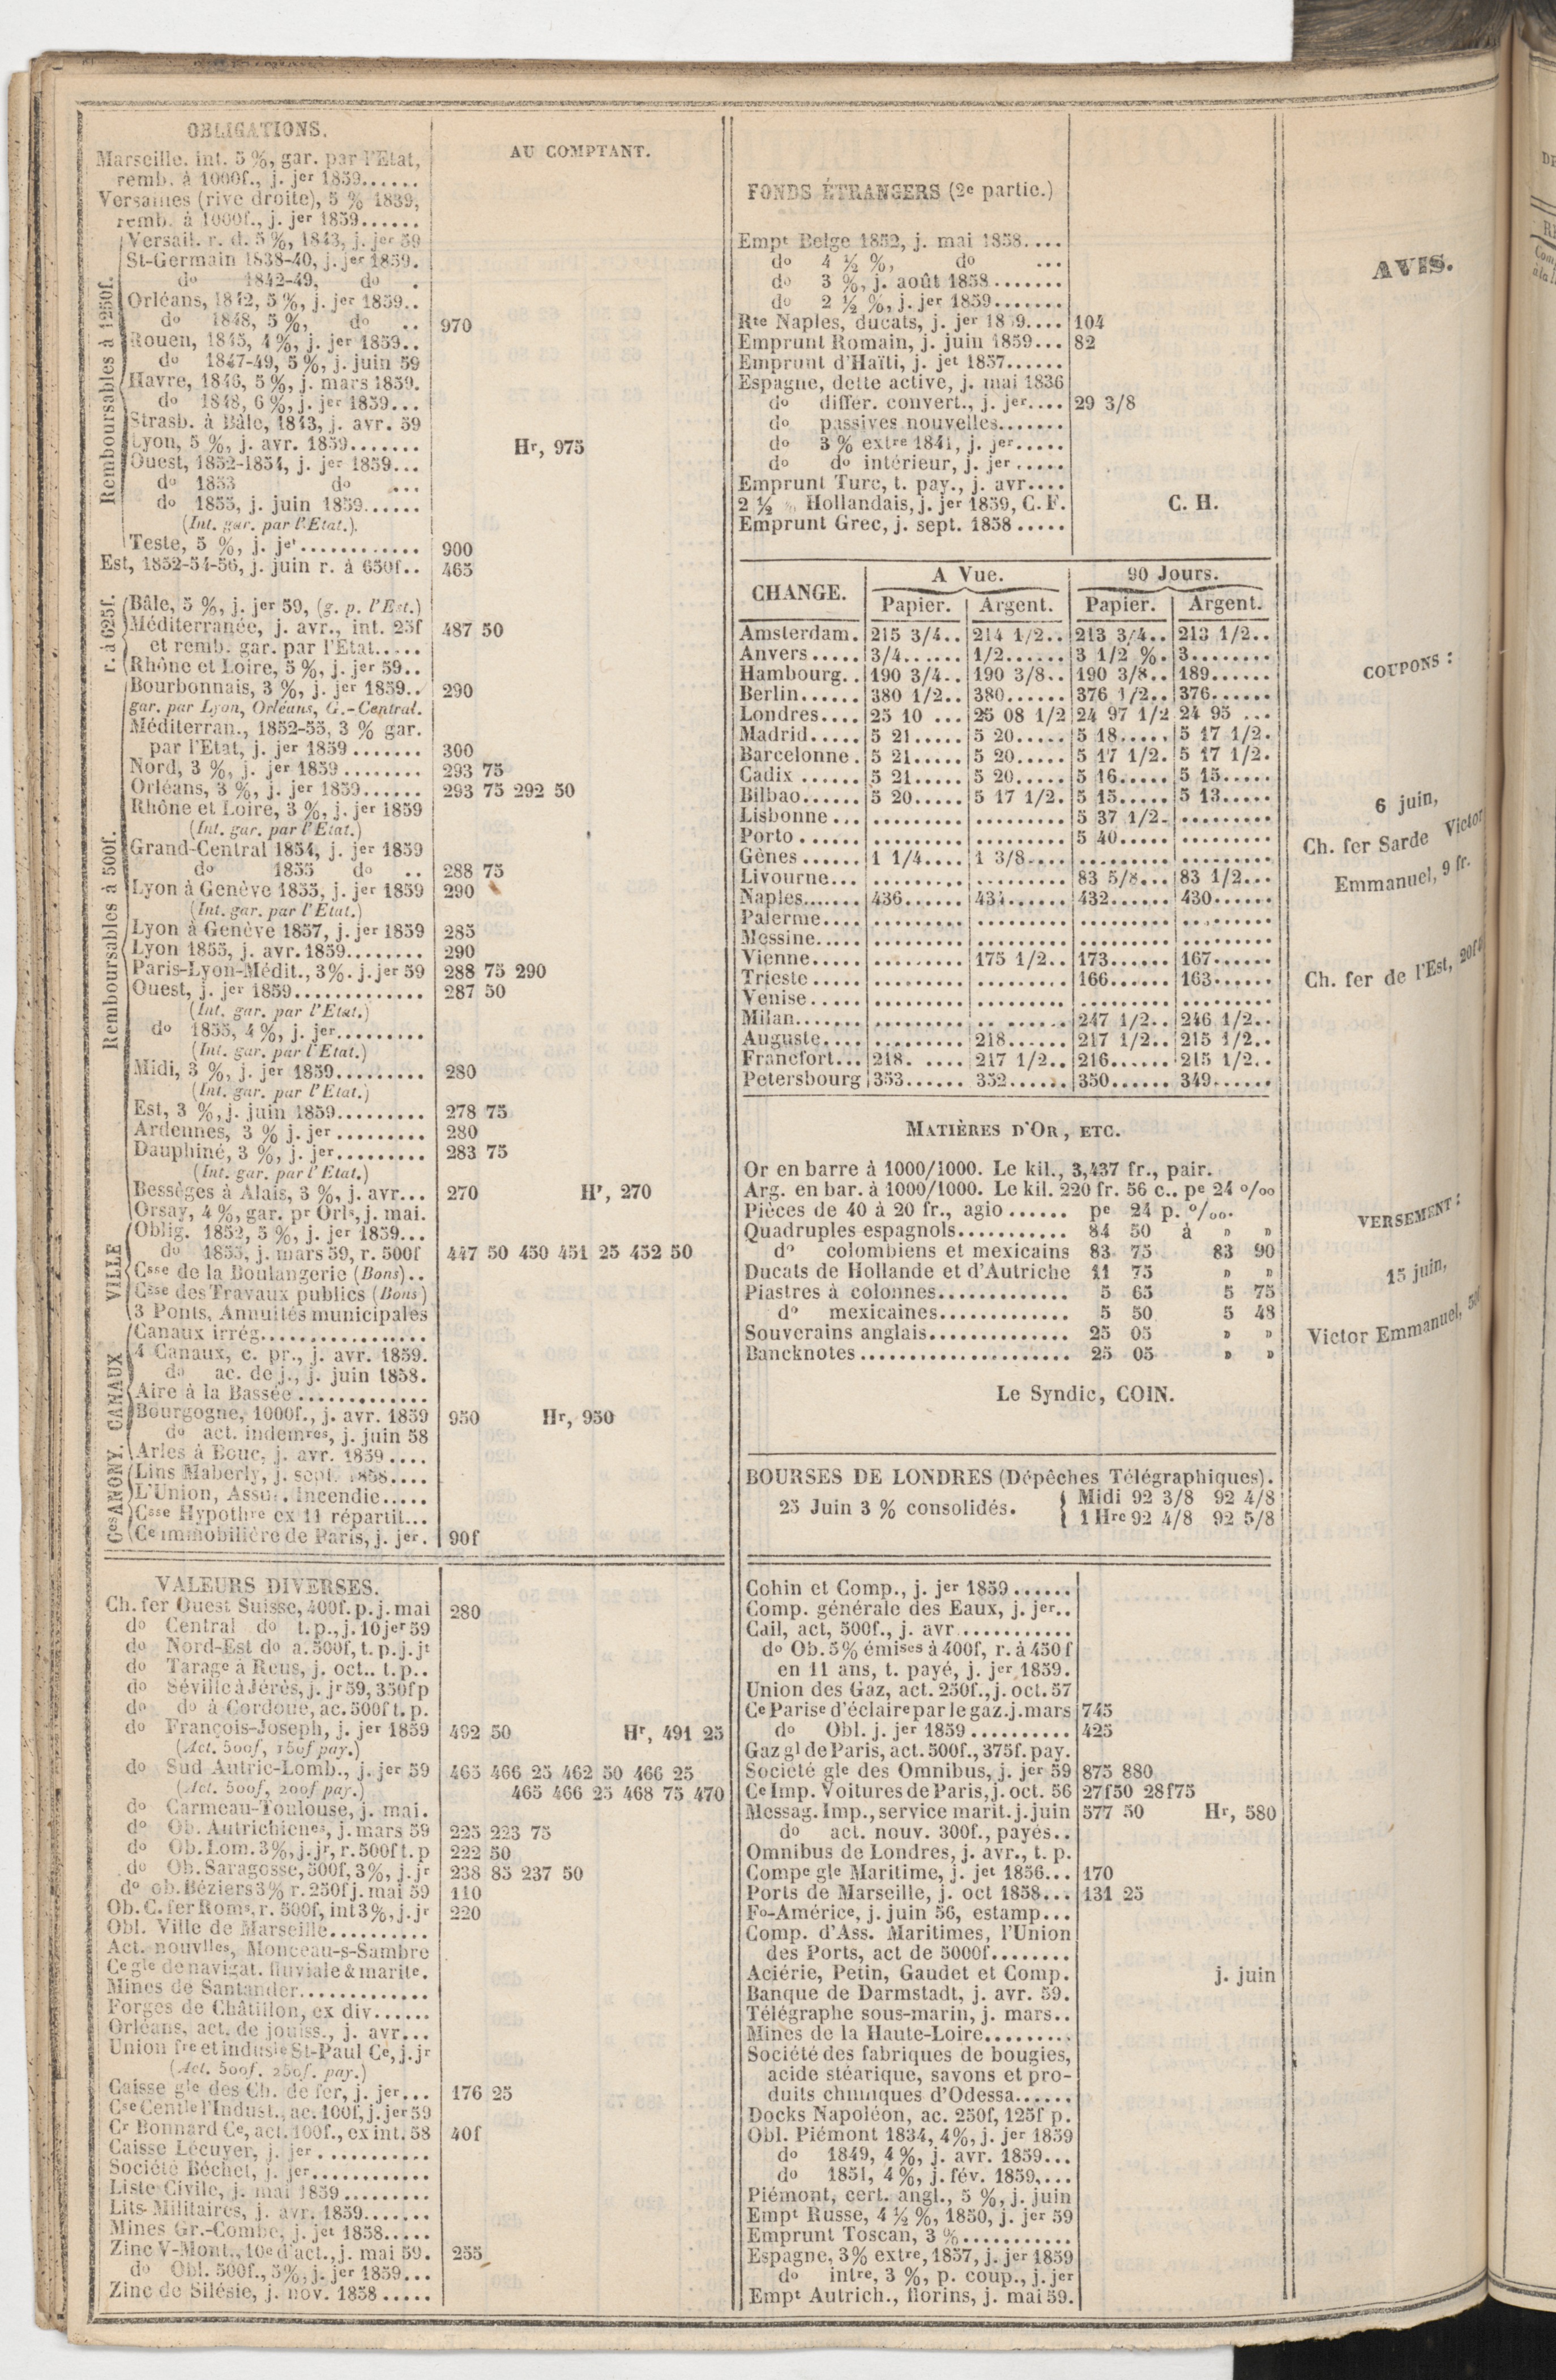 OBLIGATIONS.
AU COMPTANT.
Marseille. int. 5 %, gar. par l'Etat,
remb. à 1000f., j. jer 1859......
Versailles (rive droite), 5 % 1839,
remb. à 1000f., j. jer 1859......
Remboursables à 1250f.
Versail. r. d. 5 %, 1843, j. jer 59
St-Germain 1838-40, j. jer 1859.
do 1842-49, do .
Orléans, 1842, 5 %, j. jer 1859..
do 1848, 5 %, do .. 970
Rouen, 1845, 4 %, j. jer 1859..
do 1847-49, 5 %, j. juin 59
Havre, 1846, 5 %, j. mars 1859.
do 1848, 6 %, j. jer 1859...
Strasb. à Bâle, 1843, j. avr. 59
Lyon, 5 %, j. avr. 1859....... Hr, 975
Ouest, 1852-1854, j. jer 1859...
do 1853 do ...
do 1855, j. juin 1859......
(Int. gar. par l'Etat.)
Teste, 5 %, j. jet............ 900
Est, 1852-54-56, j. juin r. à 650f.. 465
r. à 625f.
Bâle, 5 %, j. jer 59, (g. p. l'Est.)
Méditerranée, j. avr., int. 25f 487 50
et remb. gar. par l'Etat.....
Rhône et Loire, 5 %, j. jer 59..
Remboursables à 500f.
Bourbonnais, 3 %, j. jer 1859.. 290
gar. par Lyon, Orléans, G.-Central.
Méditerran., 1852-55, 3 % gar.
par l'Etat, j. jer 1859....... 300
Nord, 3 %, j. jer 1859........ 293 75
Orléans, 3 %, j. jer 1859...... 293 75 292 50
Rhône et Loire, 3 %, j. jer 1859
(Int. gar. par l'Etat.)
Grand-Central 1854, j. jer 1859
do 1855 do .. 288 75
Lyon à Genève 1855, j. jer 1859 290
(Int. gar. par l'Etat.)
Lyon à Genève 1857, j. jer 1859 285
Lyon 1855, j. avr. 1859........ 290
Paris-Lyon-Médit., 3%. j. jer 59 288 75 290
Ouest, j. jer 1859............. 287 50
(Int. gar. par l'Etat.)
do 1855, 4 %, j. jer.........
(Int. gar. par l'Etat.)
Midi, 3 %, j. jer 1859......... 280
(Int. gar. par l'Etat.)
Est, 3 %, j. juin 1859......... 278 75
Ardennes, 3 % j. jer......... 280
Dauphiné, 3 %, j. jer......... 283 75
(Int. gar. par l'Etat.)
Bessèges à Alais, 3 %, j. avr... 270 Hr, 270
Orsay, 4 %, gar. pr Orls, j. mai.
VILLE
Oblig. 1852, 5 %, j. jer 1859...
do 1855, j. mars 59, r. 500f 447 50 450 451 25 452 50
Csse de la Boulangerie (Bons)..
Csse des Travaux publics (Bons)
3 Ponts, Annuités municipales
CANAUX
Canaux irrég.................
4 Canaux, c. pr., j. avr. 1859.
do ac. de j., j. juin 1858.
Aire à la Bassée.............
Bourgogne, 1000f., j. avr. 1859 950 Hr, 950
do act. indemres, j. juin 58
Arles à Bouc, j. avr. 1859....
Ces ANONY.
Lins Maberly, j. sept. 1858....
L'Union, Assur. Incendie.....
Csse Hypothre ex 11 répartit...
Ce immobilière de Paris, j. jer. 90f
VALEURS DIVERSES.
Ch. fer Ouest Suisse, 400f. p. j. mai 280
do Central do t. p., j. 10 jer 59
do Nord-Est do a. 500f, t. p. j. jt
do Tarage à Reus, j. oct.. t. p..
do Séville à Jérès, j. jr 59, 350f p
do do à Cordoue, ac. 500f t. p.
do François-Joseph, j. jer 1859 492 50 Hr, 491 25
(Act. 500f, 150f pay.)
do Sud Autric-Lomb., j. jer 59 465 466 25 462 50 466 25
(Act. 500f, 200f pay.) 465 466 25 468 75 470
do Carmeau-Toulouse, j. mai.
do Ob. Autrichienes, j. mars 59 225 223 75
do Ob. Lom. 3%, j. jr, r. 500f t. p 222 50
do Ob. Saragosse, 500f, 3%, j. jr 238 85 237 50
do ob. Béziers 3% r. 250f j. mai 59 110
Ob. C. fer Roms, r. 500f, int 3%, j. jr 220
Obl. Ville de Marseille..........
Act. nouvlles, Monceau-s-Sambre
Ce gle de navigat. fluviale & marite.
Mines de Santander.............
Forges de Châtillon, ex div......
Orléans, act. de jouiss., j. avr...
Union fre et indusle St-Paul Ce, j. jr
(Act. 500f. 250f. pay.)
Caisse gle des Ch. de fer, j. jer... 176 25
Cse Centle l'Indust., ac. 100f, j. jer 59
Cr Bonnard Ce, act. 100f., ex int. 58 40f
Caisse Lécuyer, j. jer...........
Société Béchet, j. jer............
Liste Civile, j. mai 1859.........
Lits-Militaires, j. avr. 1859.......
Mines Gr.-Combe, j. jet 1858.....
Zinc V-Mont., 10e d'act., j. mai 59. 255
do Obl. 500f., 5%, j. jer 1859...
Zinc de Silésie, j. nov. 1858.....
FONDS ÉTRANGERS (2e partie.)
Empt Belge 1852, j. mai 1858....
do 4 ½ %, do ...
do 3 %, j. août 1858.......
do 2 ½ %, j. jer 1859.......
Rte Naples, ducats, j. jer 1859.... 104
Emprunt Romain, j. juin 1859... 82
Emprunt d'Haïti, j. jet 1857......
Espagne, dette active, j. mai 1836
do differ. convert., j. jer.... 29 3/8
do passives nouvelles.......
do 3 % extre 1841, j. jer.....
do do intérieur, j. jer.....
Emprunt Turc, t. pay., j. avr....
2 ½ % Hollandais, j. jer 1859, C. F. C. H.
Emprunt Grec, j. sept. 1858.....
CHANGE. A Vue. 90 Jours.
Papier. Argent. Papier. Argent.
Amsterdam. 215 3/4.. 214 1/2.. 213 3/4.. 213 1/2..
Anvers..... 3/4...... 1/2...... 3 1/2 %. 3........
Hambourg.. 190 3/4.. 190 3/8.. 190 3/8.. 189......
Berlin...... 380 1/2.. 380...... 376 1/2.. 376......
Londres.... 25 10 ... 25 08 1/2 24 97 1/2 24 95 ...
Madrid..... 5 21..... 5 20..... 5 18..... 5 17 1/2.
Barcelonne. 5 21..... 5 20..... 5 17 1/2. 5 17 1/2.
Cadix...... 5 21..... 5 20..... 5 16..... 5 15.....
Bilbao...... 5 20..... 5 17 1/2. 5 15..... 5 13.....
Lisbonne... ......... ......... 5 37 1/2. .........
Porto...... ......... ......... 5 40..... .........
Gênes...... 1 1/4.... 1 3/8.... ......... .........
Livourne... ......... ......... 83 5/8... 83 1/2...
Naples....... 436...... 434...... 432...... 430......
Palerme.... ......... ......... ......... .........
Messine..... ......... ......... ......... .........
Vienne..... ......... 175 1/2.. 173...... 167......
Trieste..... ......... ......... 166...... 163......
Venise..... ......... ......... ......... .........
Milan....... ......... ......... 247 1/2.. 246 1/2..
Auguste.... ......... 218...... 217 1/2.. 215 1/2..
Francfort... 218. .... 217 1/2.. 216...... 215 1/2..
Petersbourg 353...... 352...... 350...... 349......
MATIÈRES D'OR, ETC.
Or en barre à 1000/1000. Le kil., 3,437 fr., pair.
Arg. en bar. à 1000/1000. Le kil. 220 fr. 56 c.. pe 24 o/oo
Pièces de 40 à 20 fr., agio...... pe 24 p. o/oo.
Quadruples espagnols........... 84 50 à » »
do colombiens et mexicains 83 75 83 90
Ducats de Hollande et d'Autriche 11 75 » »
Piastres à colonnes............. 5 65 5 75
do mexicaines............. 5 50 5 48
Souverains anglais.............. 25 05 » »
Bancknotes..................... 25 05 » »
Le Syndic, COIN.
BOURSES DE LONDRES (Dépêches Télégraphiques).
25 Juin 3 % consolidés. { Midi 92 3/8 92 4/8
1 Hre 92 4/8 92 5/8
Cohin et Comp., j. jer 1859......
Comp. générale des Eaux, j. jer..
Cail, act, 500f., j. avr...........
do Ob. 5% émises à 400f, r. à 450f
en 11 ans, t. payé, j. jer 1859.
Union des Gaz, act. 250f., j. oct. 57
Ce Parise d'éclaire par le gaz. j. mars 745
do Obl. j. jer 1859.......... 425
Gaz gl de Paris, act. 500f., 375f. pay.
Société gle des Omnibus, j. jer 59 875 880
Ce Imp. Voitures de Paris, j. oct. 56 27f50 28f75
Messag. Imp., service marit. j. juin 577 50 Hr, 580
do act. nouv. 300f., payés..
Omnibus de Londres, j. avr., t. p.
Compe gle Maritime, j. jet 1856... 170
Ports de Marseille, j. oct 1858... 131 25
Fo-Américe, j. juin 56, estamp...
Comp. d'Ass. Maritimes, l'Union
des Ports, act de 5000f........
Aciérie, Petin, Gaudet et Comp. j. juin
Banque de Darmstadt, j. avr. 59.
Télégraphe sous-marin, j. mars..
Mines de la Haute-Loire.........
Société des fabriques de bougies,
acide stéarique, savons et pro-
duits chimiques d'Odessa......
Docks Napoléon, ac. 250f, 125f p.
Obl. Piémont 1834, 4%, j. jer 1859
do 1849, 4 %, j. avr. 1859...
do 1851, 4 %, j. fév. 1859,...
Piémont, cert. angl., 5 %, j. juin
Empt Russe, 4 ½ %, 1850, j. jer 59
Emprunt Toscan, 3 %...........
Espagne, 3% extre, 1857, j. jer 1859
do intre, 3 %, p. coup., j. jer
Empt Autrich., florins, j. mai 59.
AVIS.
COUPONS :
6 juin,
Ch. fer Sarde Victor
Emmanuel, 9 fr.
Ch. fer de l'Est,
VERSEMENT :
15 juin,
Victor Emmanuel,